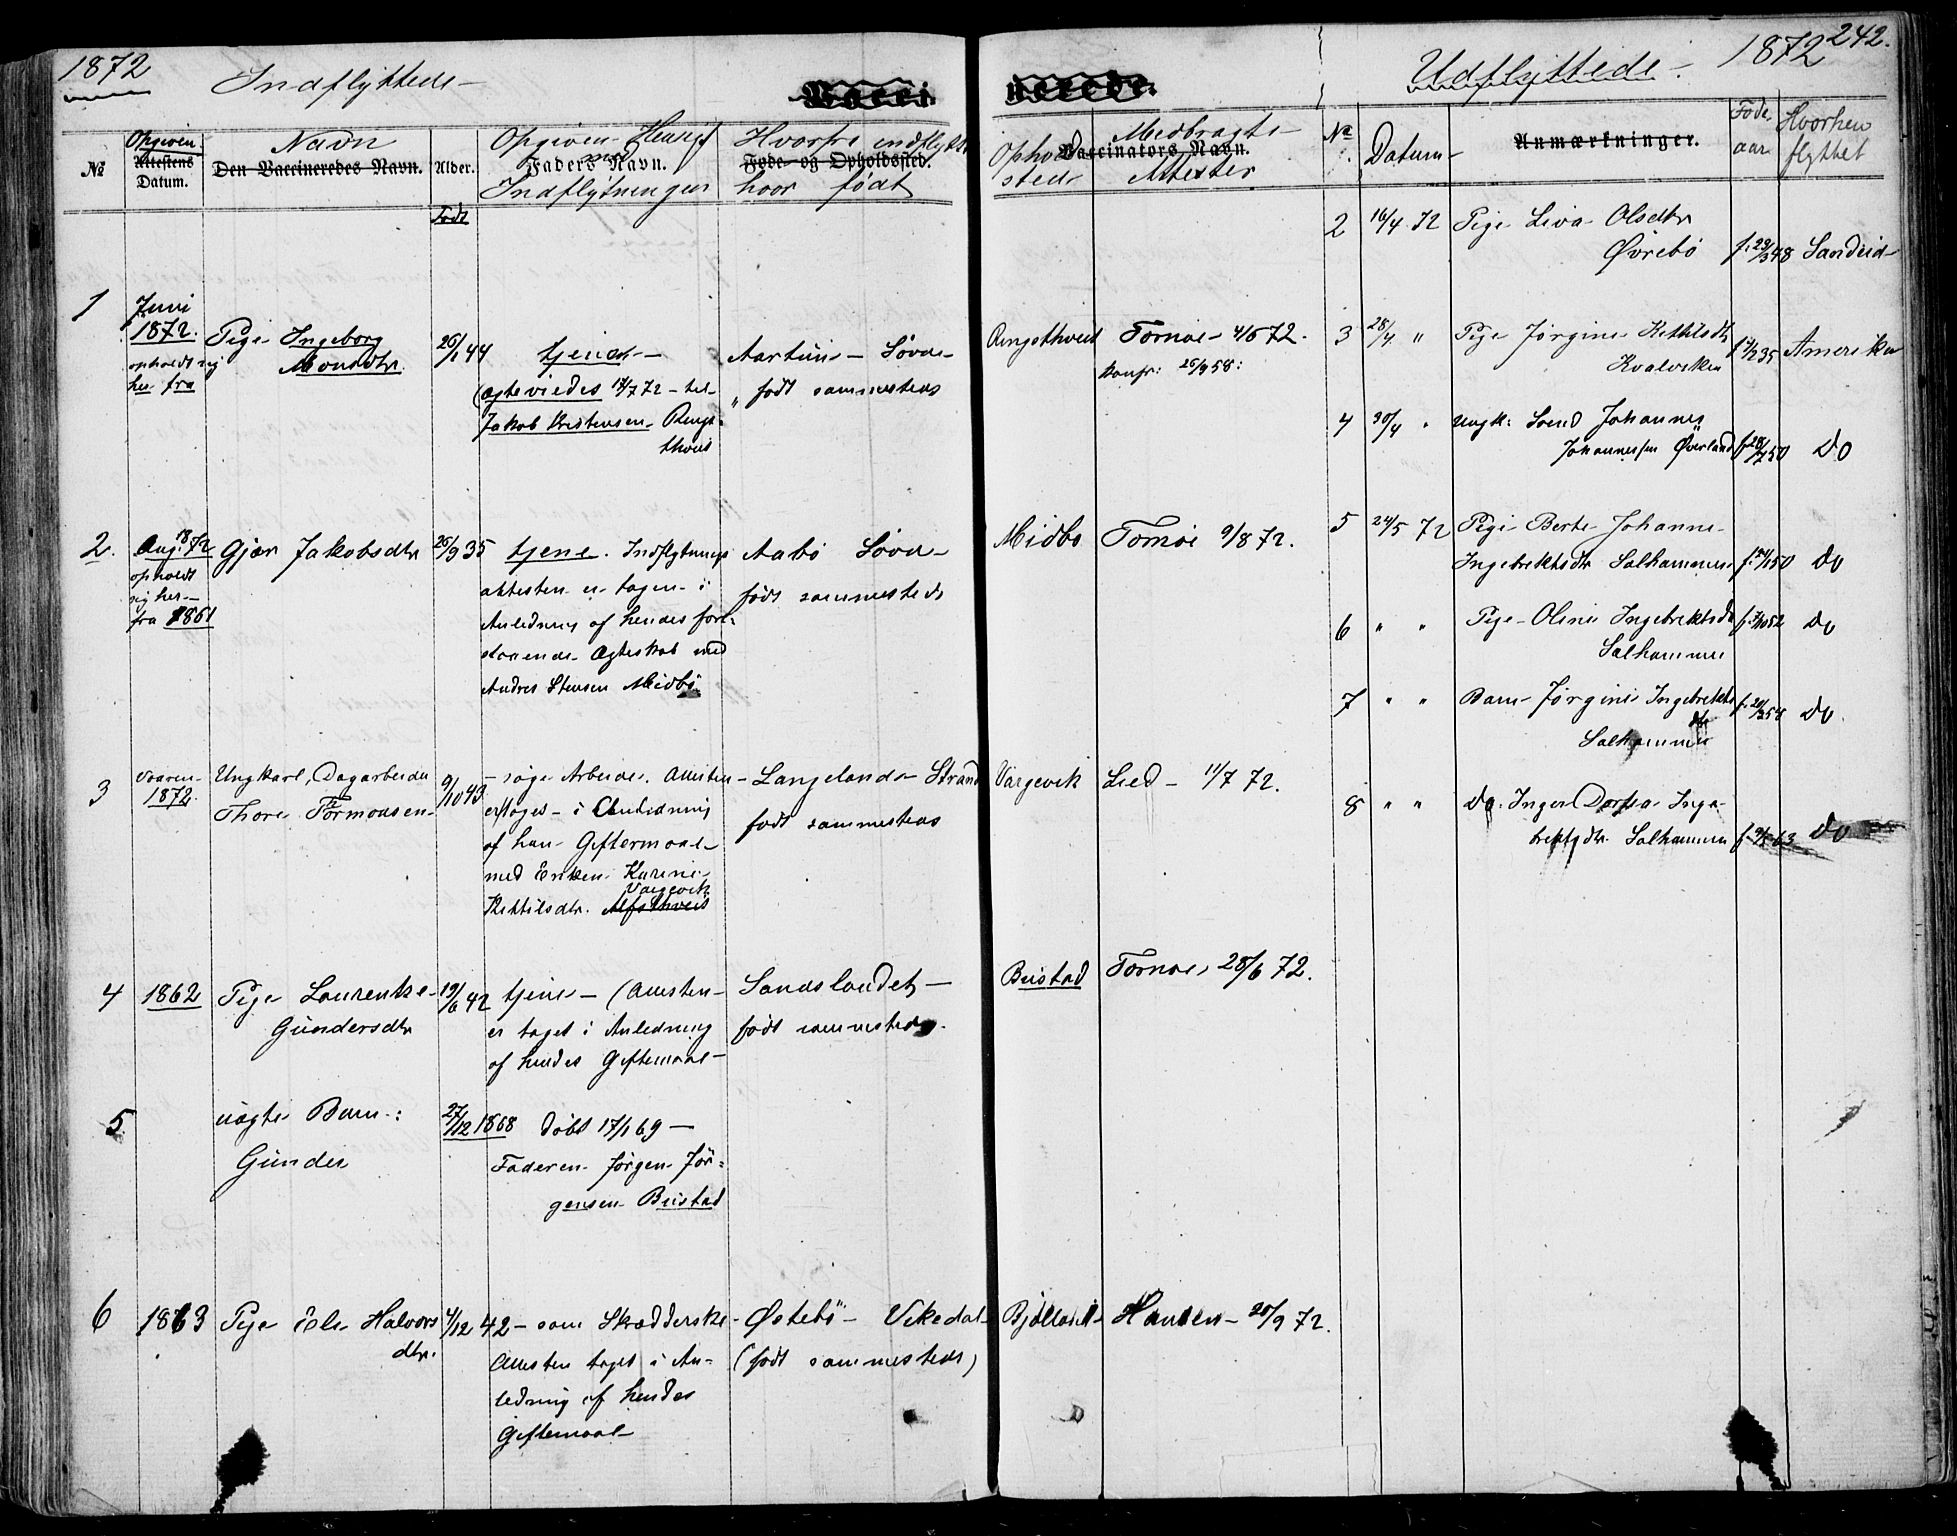 1872
Indflyttede
Vacci
nerede.
Udflyttede
1872
242.
No
Opgiven
Attestens
Datum.
Navn
Den Vaccineredes Navn.
Alder.
Født
Opgiven Hensigt
med
Faders Navn.
Indflytningen
Hvorfra indflyttet
Føde- og Opholdssted.
hvor født
Opholds
sted
Medbragte
Vaccinators Navn.
Attester
No
Datum
Anmærkninger.
Føde
aar
Hvorhen
flyttet
1
Juni
1872.
opholdt sig
her fra
Pige Ingeborg
Monsdtr.
26/1 44
tjene
(ægteviedes 14/7 72 til
Jakob Kristensen Rengs-
thveit
Aartun Søvde
" født sammesteds
Rengsthveit
Tornøe 4/6 72.
Konfr: 26/9 58:
2.
Aug. 1872
opholdt
sig her
fra 1861
Gjøa Jakobsdtr
25/9 35
tjene. Indflytnings
attesten er tagen i
Anledning af hendes fore-
staaende Ægteskab med
Andres Stensen Midbø
Aabø Søvde
født sammesteds
Midbø
Tornøe 9/8 72.
3
Vaaren
1872.
Ungkarl, Dagarbeider
Thore Tormodsen
9/10 43
søge Arbeide. Attesten
er taget i Anledning
af hans Giftermaal
med Enken Karine
Vargevik
Kittilsdtr. Alfsthveit
Langeland Strand
født sammesteds
Vargevik
Lied 11/7 72.
4
1862
Pige Laurentse
Gundersdtr
19/6 42
tjene (Attesten
er taget i Anledning
af hendes Giftemaal
Sandslandet
født sammesteds.
Bustad
Tornøe 28/6 72.
5
uægte Barn:
Gunder
27/12 1868
døbt 17/1 69
Faderen Jørgen Jør-
gensen Bustad
6
1863
Pige Eli Halvors
dtr.
4/12 42
som Skrædderske
Attesten taget i An-
ledning af hendes
Giftemaal
Østebø Vikedal
(født sammesteds)
Bjelland
Hansen 20/9 72.
2 16/4 72 Pige Liva Olsdtr
Øvrebø f. 29/3 48 Sandeid
3 28/4 " Pige Jørgine Kittilsdtr
Kvalviken 35 Amerika
4 30/4 " Ungk: Svend Johannes
Johannessen Øverland f. 28/7 50 Do
5 24/5 72 Pige Berte Johanne
Ingebrektsdtr Salhammer 50 Do
6 " " Pige Oline Ingebrektsdtr
Salhammer f. 52 Do
7 " " Barn Jørgine Ingebrekts
dtr
Salhammer f. 20/2 54 Do.
8 " " Do. Inger Dortea Inge-
brektsdtr. Salhammer f. 63 Do